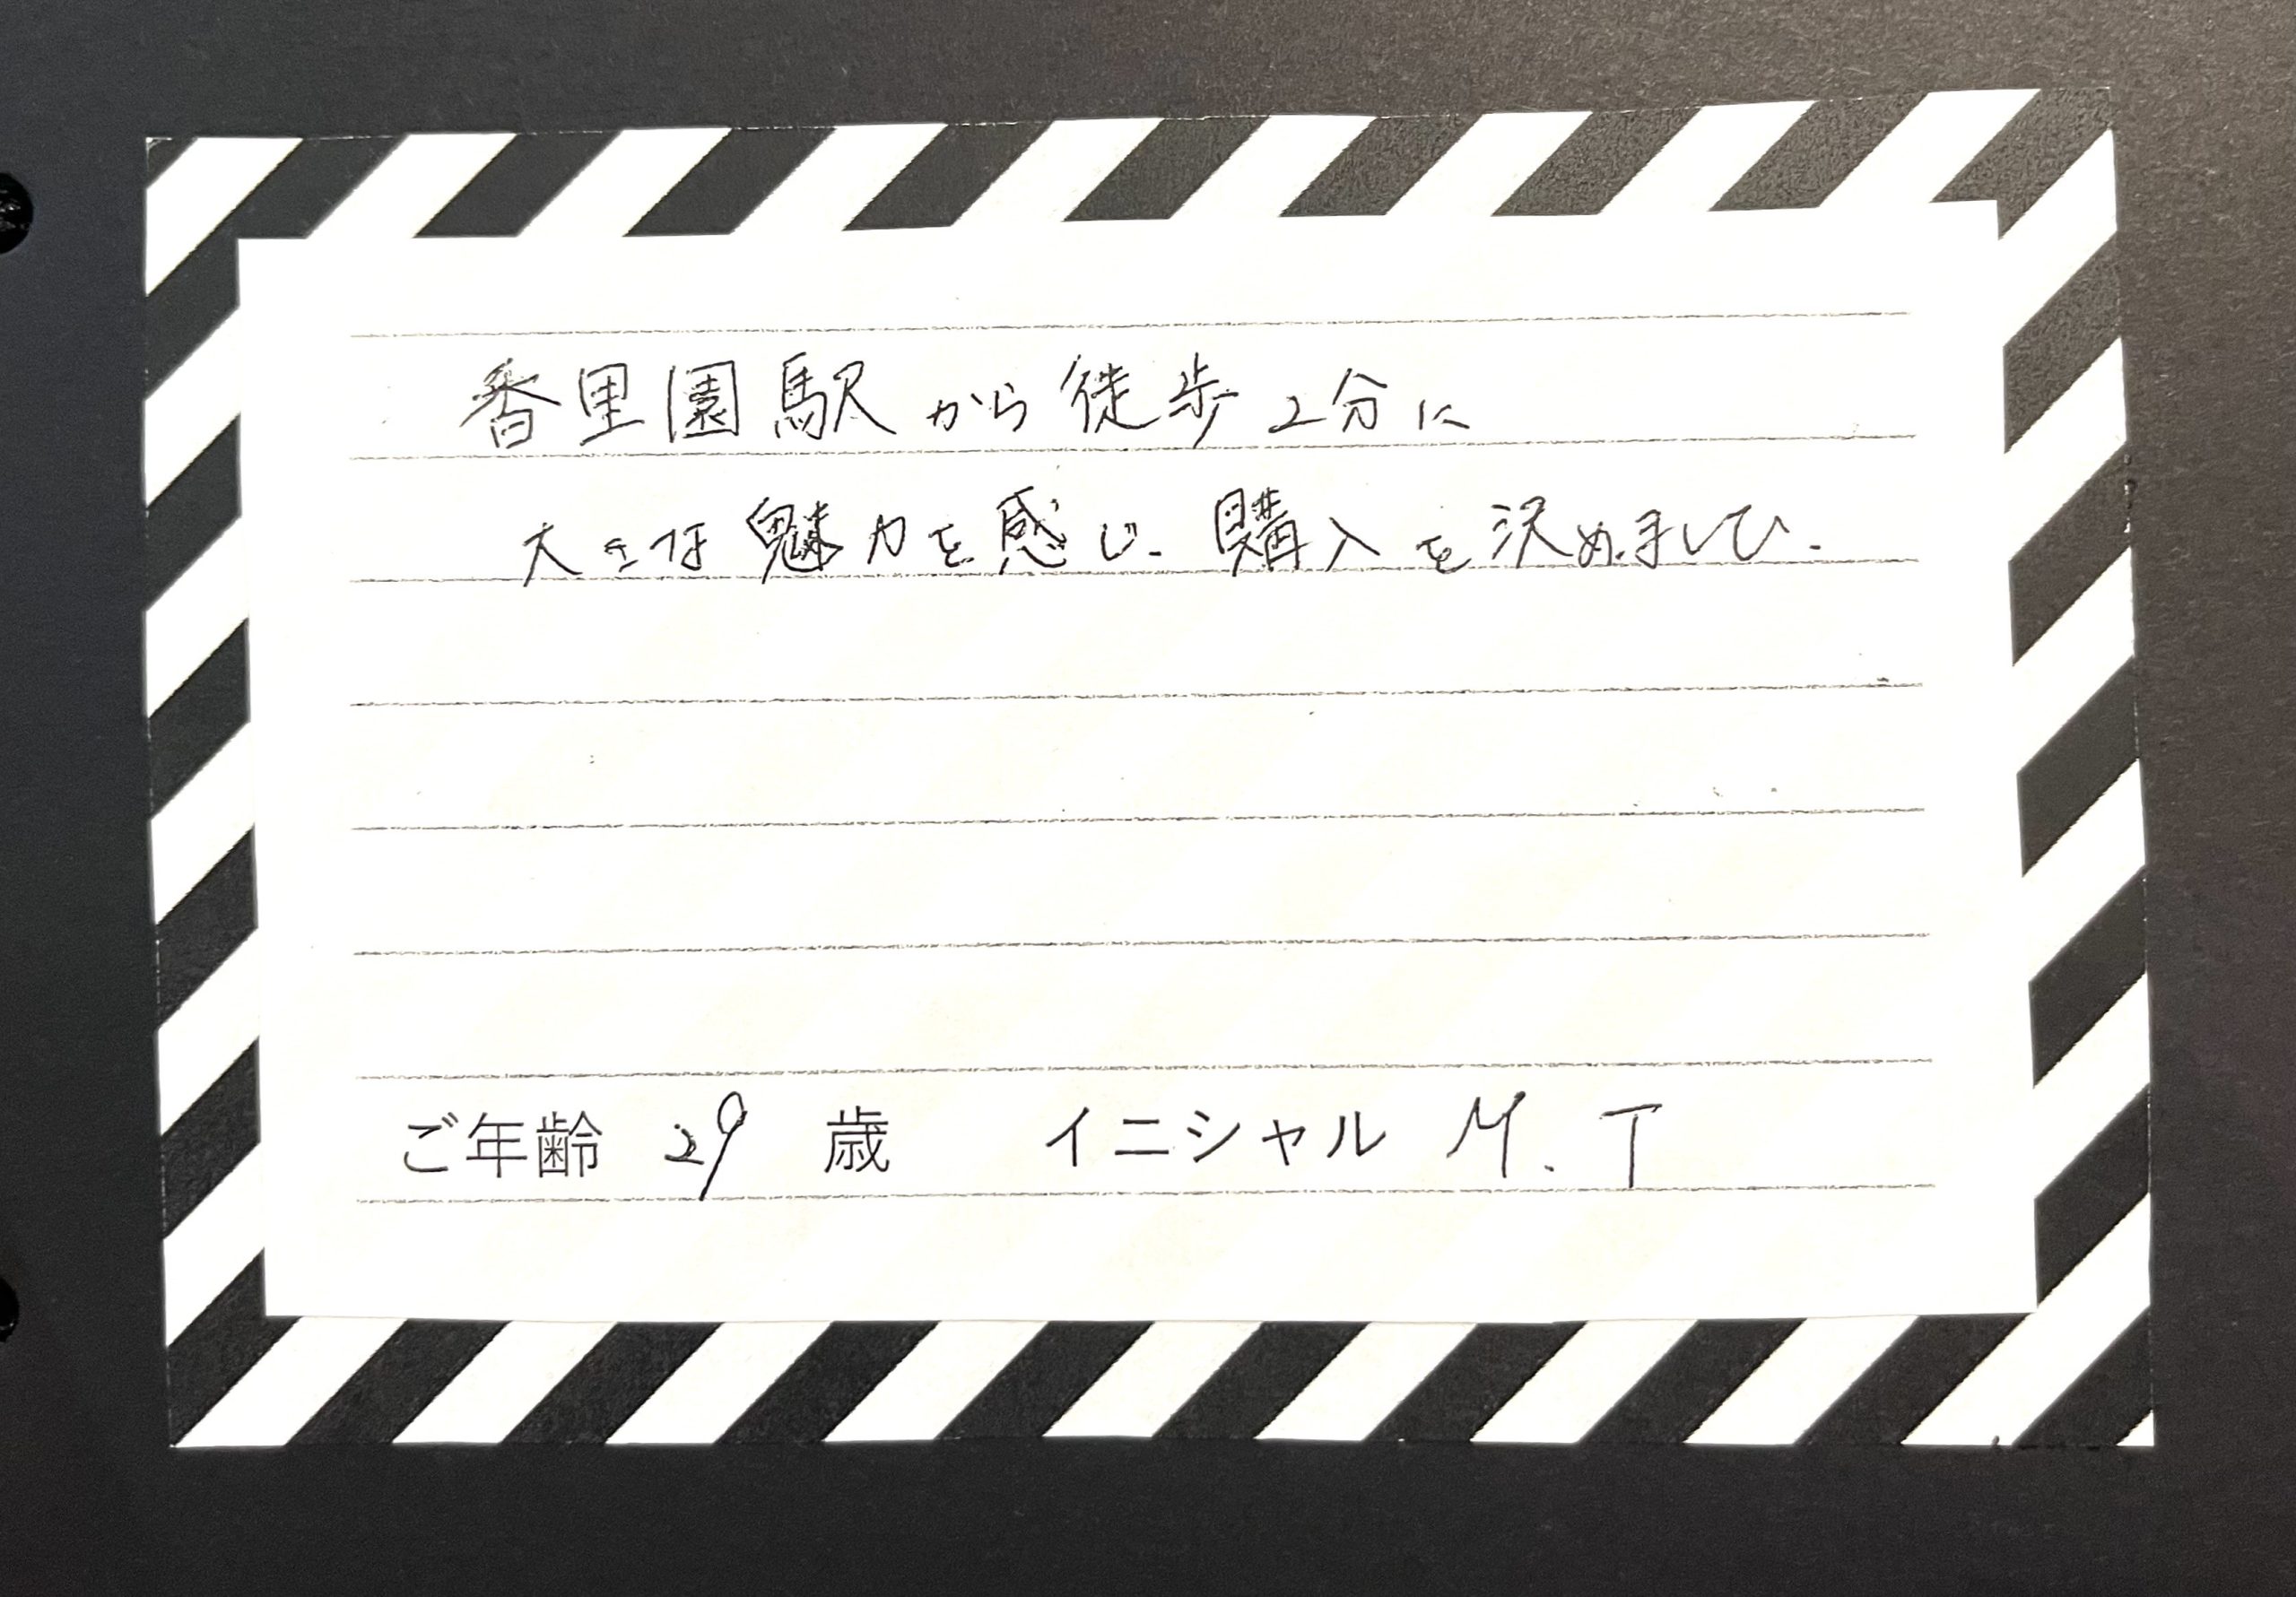 香里園駅から徒歩2分に
大きな魅力を感じ、購入を決めました。
ご年齢 29 歳 イニシャル M.T